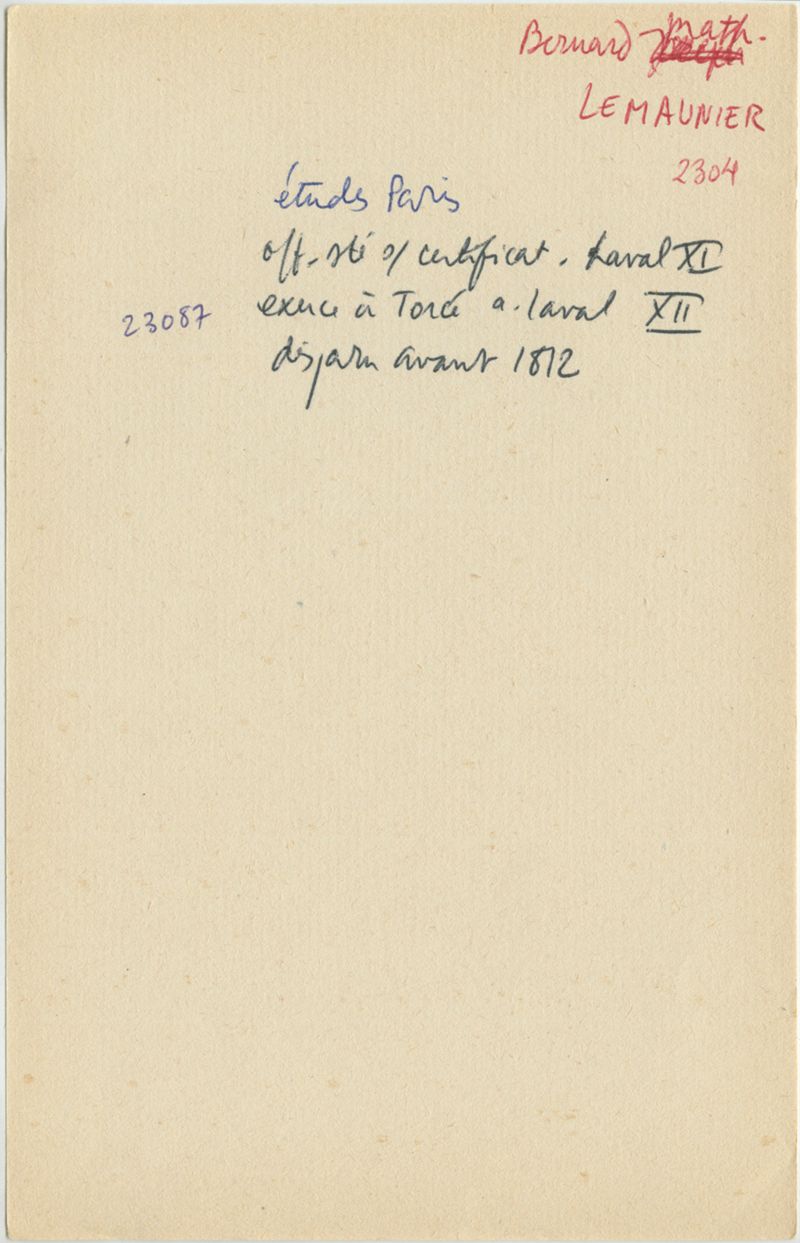 Bernard Math.
LEMAUNIER
2304
études Paris
off. sté s/ certificat. Laval XI
exerce à Torcé a. Laval XII
23087
disparu avant 1812